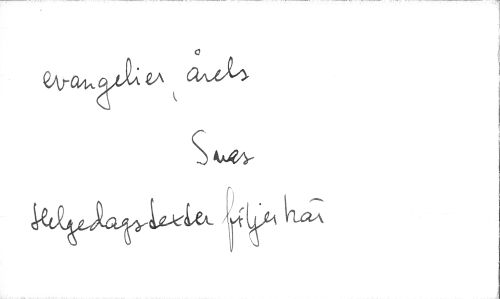 evangelier, årets
Smas
Helgedagstexter följer här